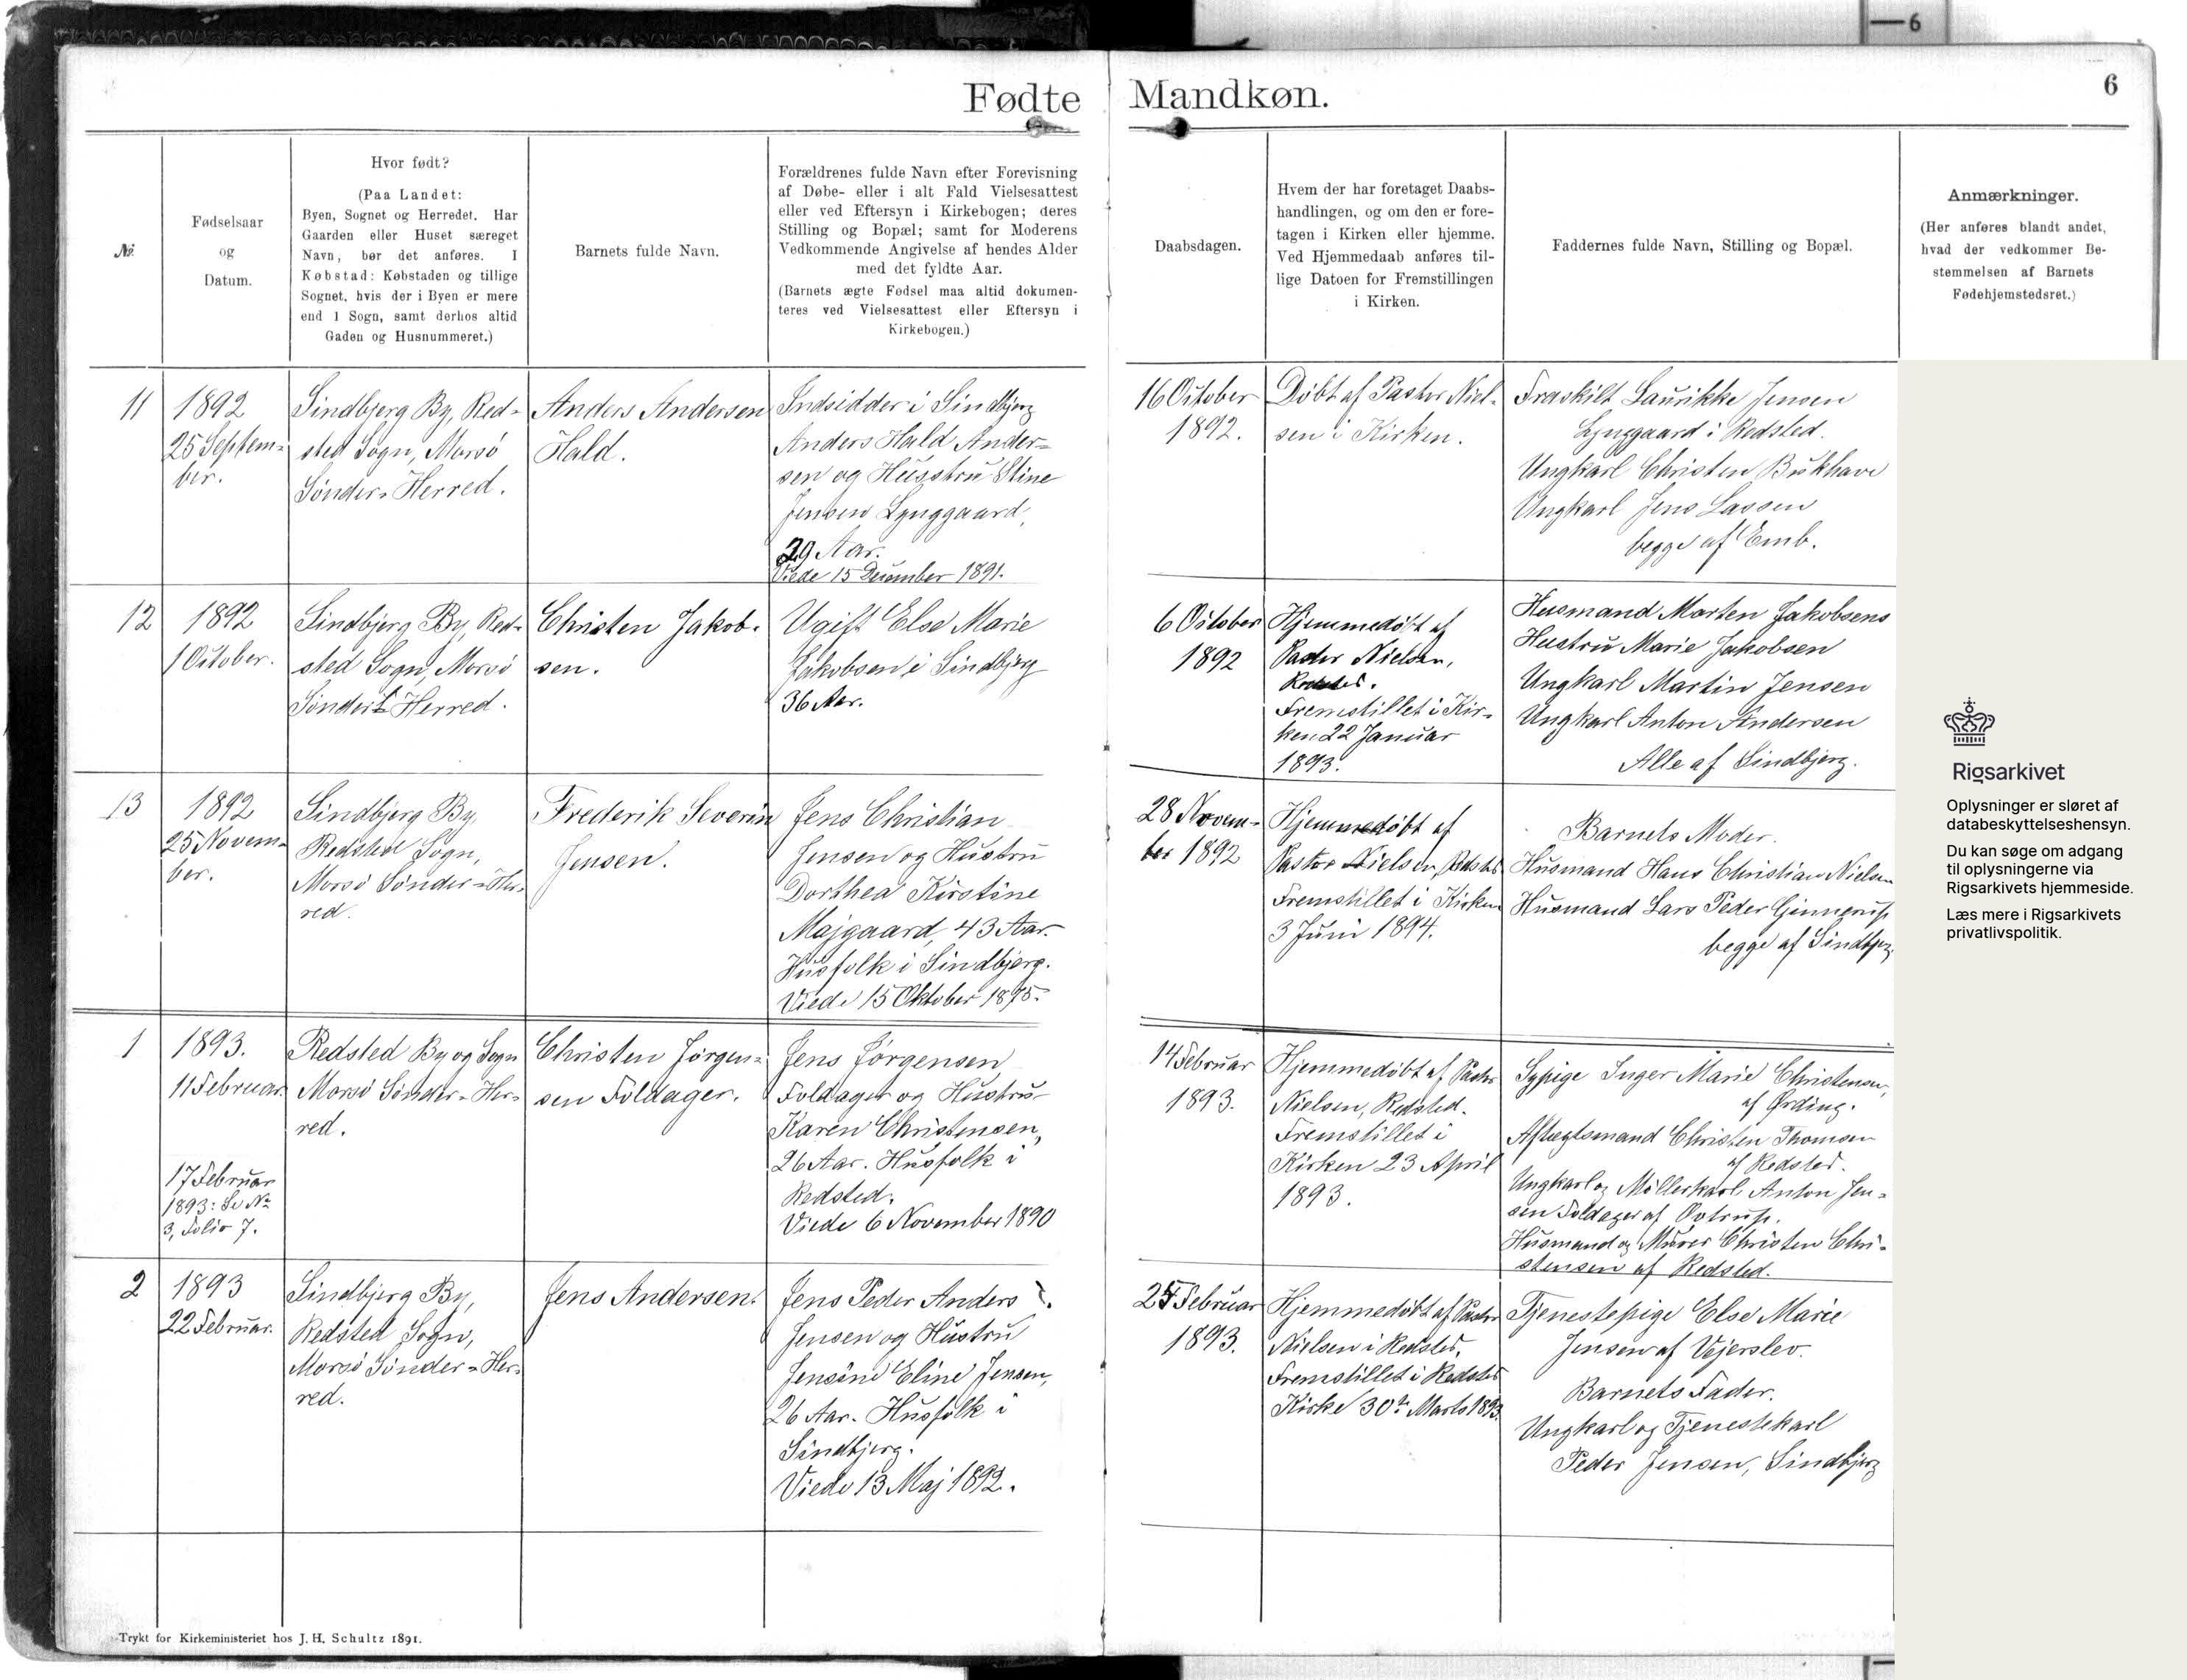 6
Fødte
Mandkøn.
6
№
Fødselsaar
og
Datum.
Hvor født?
(Paa Landet:
Byen, Sognet og Herredet. Har
Gaarden eller Huset særeget
Navn, bør det anføres. I
Købstad: Købstaden og tillige
Sognet, hvis der i Byen er mere
end 1 Sogn, samt derhos altid
Gaden og Husnummeret.)
Barnets fulde Navn.
Forældrenes fulde Navn efter Forevisning
af Døbe- eller i alt Fald Vielsesattest
eller ved Eftersyn i Kirkebogen; deres
Stilling og Bopæl; samt for Moderens
Vedkommende Angivelse af hendes Alder
med det fyldte Aar.
(Barnets ægte Fødsel maa altid dokumen-
teres ved Vielsesattest eller Eftersyn i
Kirkebogen.)
Daabsdagen.
Hvem der har foretaget Daabs-
handlingen, og om den er fore-
tagen i Kirken eller hjemme.
Ved Hjemmedaab anføres til-
lige Datoen for Fremstillingen
i Kirken.
Faddernes fulde Navn, Stilling og Bopæl.
Anmærkninger.
(Her anføres blandt andet,
hvad der vedkommer Be-
stemmelsen af Barnets
Fødehjemstedsret.)
11
1892
25 Septem-
ber.
Sindbjerg By, Red-
sted Sogn, Morsö
Sönder-Herred.
Anders Andersen
Hald.
Indsidder i Sindbjerg
Anders Hald Ander-
sen og Hüsstrü Stine
Jensen Lynggaard,
29 Aar.
Viede 15 December 1891.
16 October
1892.
Döbt af Pastor Niel-
sen i Kirken.
Fraskilt Laurikke Jensen
Lynggaard i Redsted.
Ungkarl Christen Bukhave
Ungkarl Jens Lassen
begge af Emb.
12
1892
1 October.
Sindbjerg By, Red-
sted Sogn, Morsö
Sönder-Herred.
Christen Jakob-
sen.
Ugift Else Marie
Jakobsen i Sindbjerg
36 Aar.
6 October
1892
Hjemmedöbt af
Pastor Nielsen,
Redsted.
Fremstillet i Kir-
ken 22 Januar
1893.
Husmand Morten Jakobsens
Hustru Marie Jakobsen
Ungkarl Martin Jensen
Ungkarl Anton Andersen
Alle af Sindbjerg.
13
1892
25 Novem-
ber.
Sindbjerg By,
Redsted Sogn,
Morsö Sönder-Her-
red.
Frederik Severin
Jensen.
Jens Christian
Jensen og Hustru
Dorthea Kirstine
Majgaard, 43 Aar.
Husfolk i Sindbjerg.
Viede 15 Oktober 1875.
28 Novem-
ber 1892
Hjemmedöbt af
Pastor Nielsen, Redsted
Fremstillet i Kirken
3 Juni 1894.
Barnets Moder.
Husmand Hans Christian Nielsen
Husmand Lars Peder Ginnerup
begge af Sindbjerg.
1
1893.
11 Februar.
17 Februar
1893: Se No
3, Folio 7.
Redsted By og Sogn
Morsö Sönder-Her-
red.
Christen Jörgen-
sen Foldager.
Jens Jörgensen
Foldager og Hustru
Karen Christensen,
26 Aar. Husfolk i
Redsted.
Viede 6 November 1890
14 Februar
1893.
Hjemmedöbt af Pastor
Nielsen, Redsted.
Fremstillet i
Kirken 23 April
1893.
Sypige Inger Marie Christensen,
af Ørding.
Aftægtsmand Christen Thomsen
af Redsted.
Ungkarl og Möllerkarl Anton Jen-
sen Foldager af Ovtrup.
Husmand og Murer Christen Chri-
stensen af Redsted.
2
1893
22 Februar.
Sindbjerg By,
Redsted Sogn,
Morsö Sönder-Her-
red.
Jens Andersen.
Jens Peder Anders
Jensen og Hustru
Jensine Eline Jensen,
26 Aar. Husfolk i
Sindbjerg.
Viede 13 Maj 1892.
Februar
1893.
Hjemmedöbt af Pastor
Nielsen i Redsted.
Fremstillet i Redsted
Kirke 30te Marts 1893.
Tjenestepige Else Marie
Jensen af Vejerslev.
Barnets Fader.
Ungkarl og Tjenestekarl
Peder Jensen, Sindbjerg
Trykt for Kirkeministeriet hos J. H. Schultz 1891.
Rigsarkivet
Oplysninger er sløret af
databeskyttelseshensyn.
Du kan søge om adgang
til oplysningerne via
Rigsarkivets hjemmeside.
Læs mere i Rigsarkivets
privatlivspolitik.